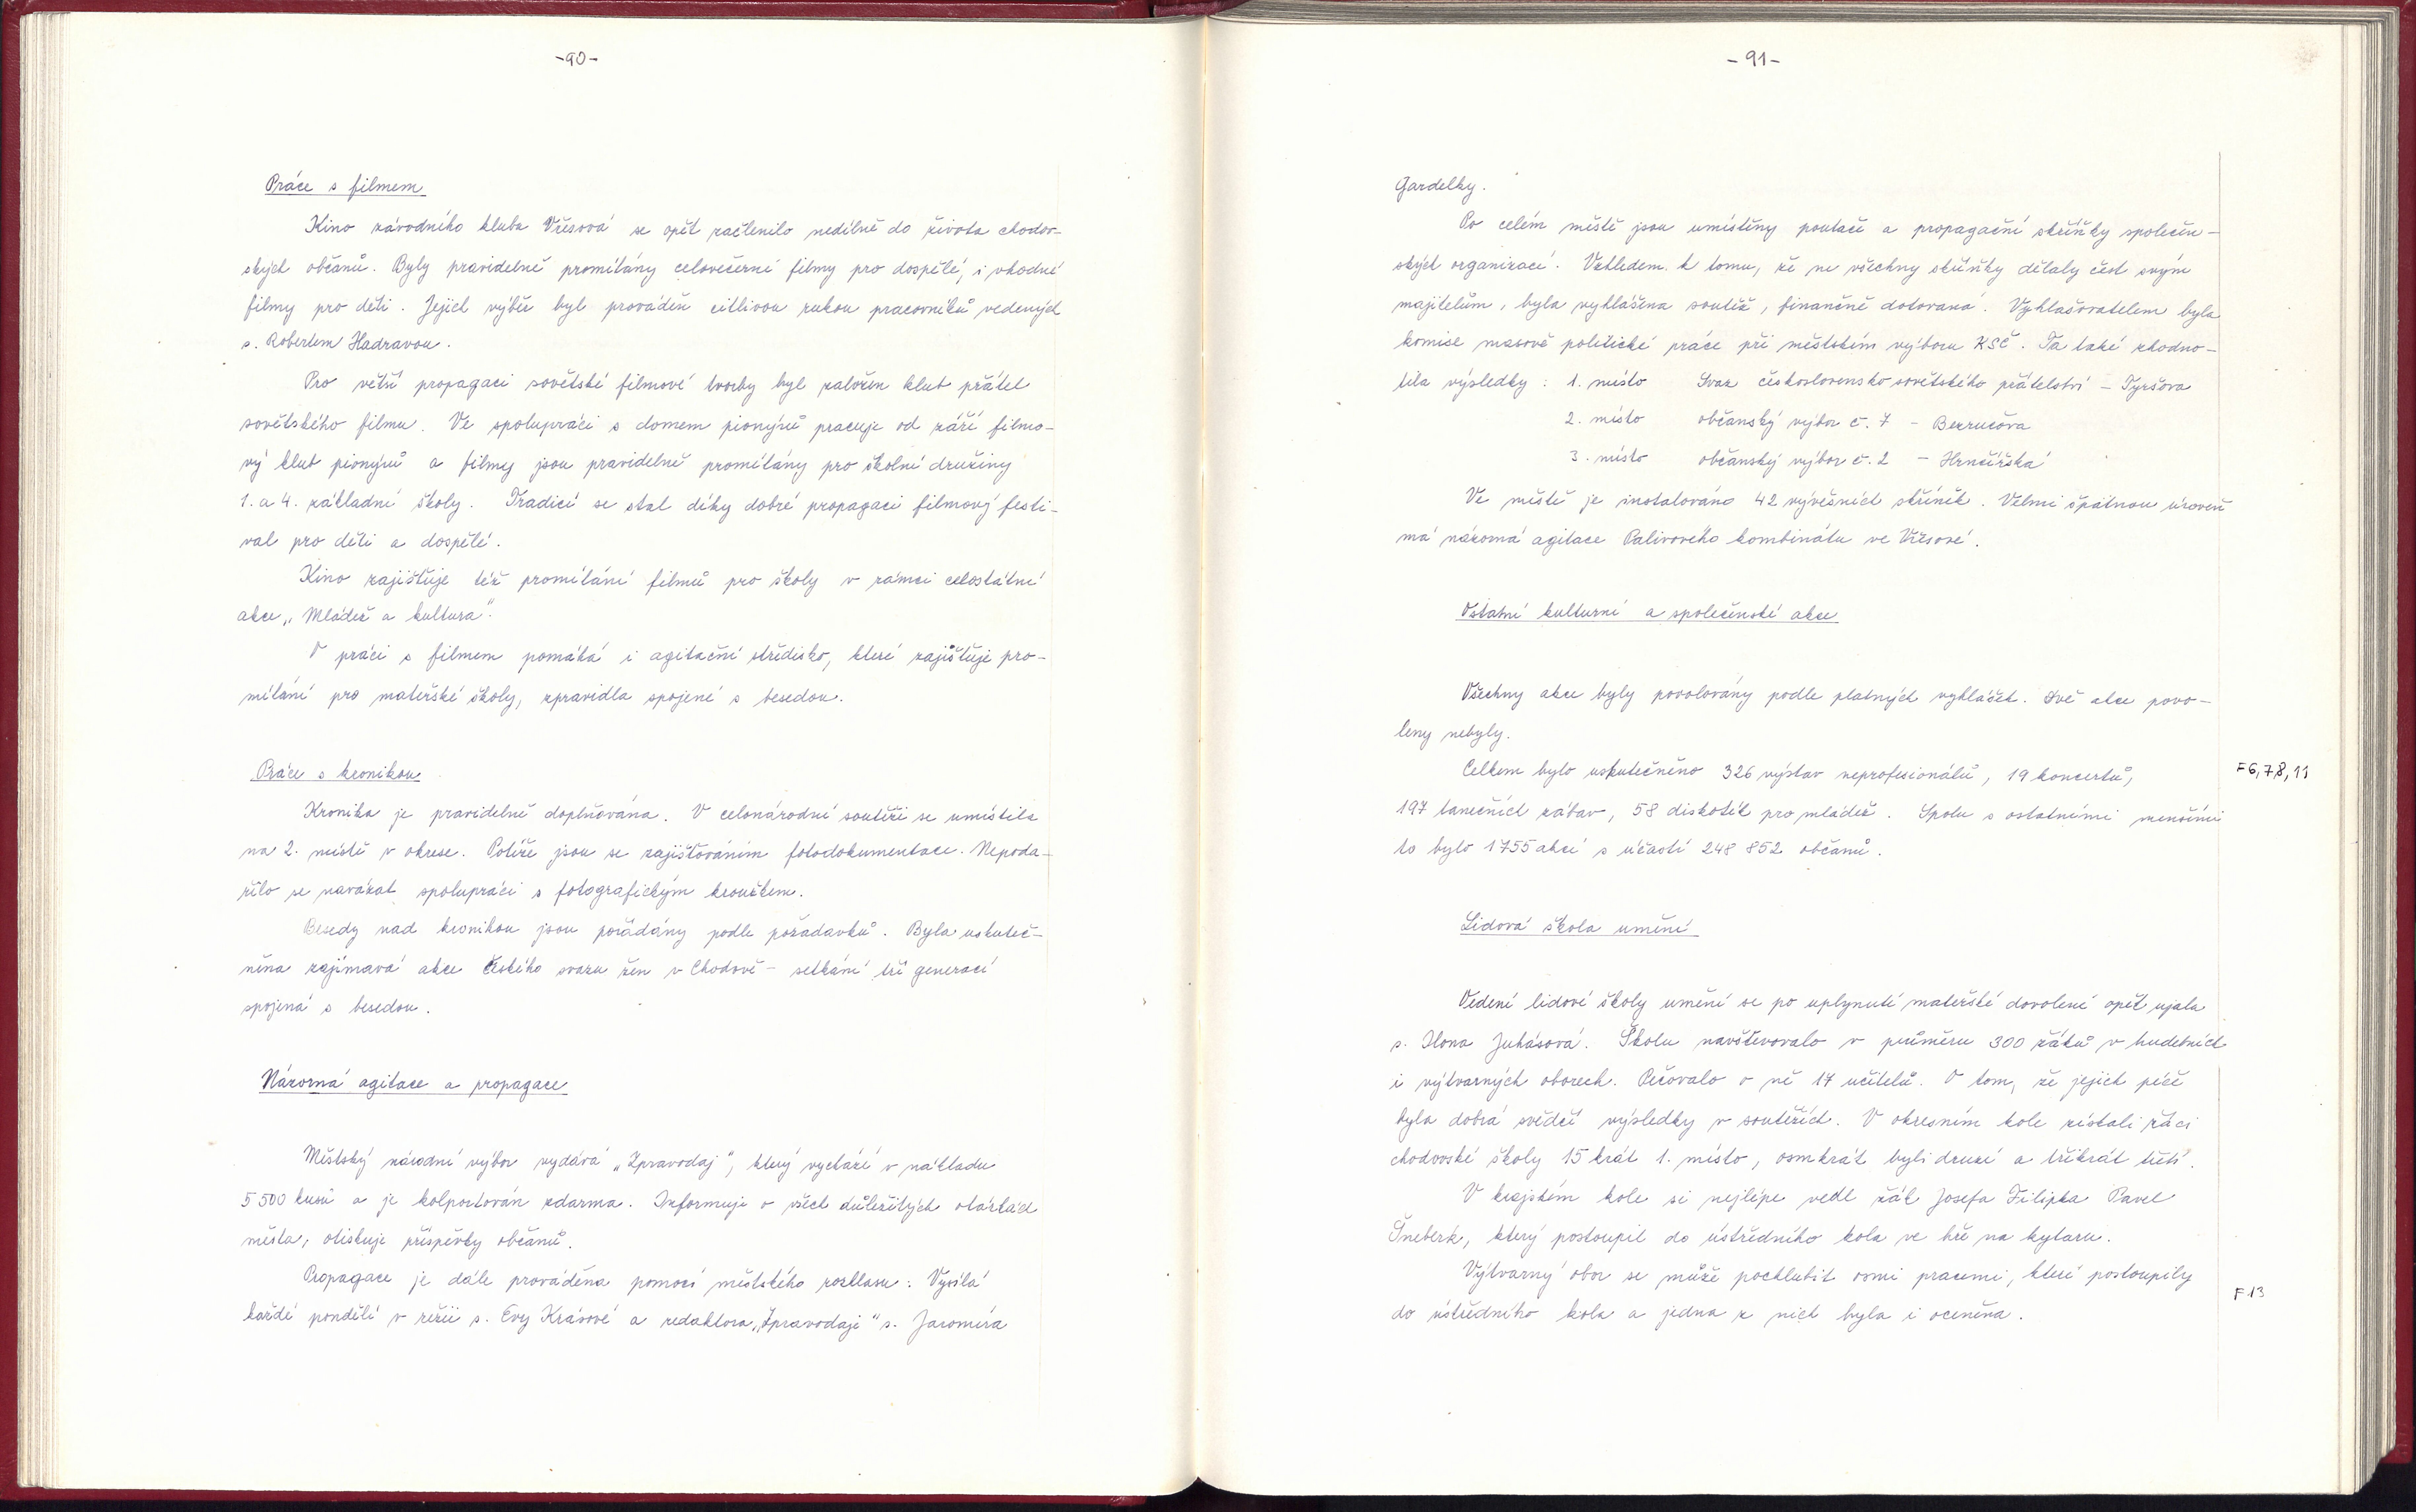 -90-
Práce s filmem
Kino závodního klubu Vřesová se opět začlenilo nedílně do života chodov-
ských občanů. Byly pravidelně promítány celovečerní filmy pro dospělé, i vhodné
filmy pro děti. Jejich výběr byl prováděn citlivou rukou pracovníků vedených
s. Robertem Hadravou.
Pro větší propagaci sovětské filmové tvorby byl založen klub přátel
sovětského filmu. Ve spolupráci s domem pionýrů pracuje od září filmo-
vý klub pionýrů a filmy jsou pravidelně promítány pro školní družiny
1. a 4. základní školy. Tradicí se stal díky dobré propagaci filmový festi-
val pro děti a dospělé.
Kino zajišťuje též promítání filmů pro školy v rámci celostátní
akce „Mládež a kultura".
V práci s filmem pomáhá i agitační středisko, které zajišťuje pro-
mítání pro mateřské školy, zpravidla spojené s besedou.
Práce s kronikou
Kronika je pravidelně doplňována. V celonárodní soutěži se umístila
na 2. místě v okrese. Potíže jsou se zajišťováním fotodokumentace. Nepoda-
řilo se navázat spolupráci s fotografickým kroužkem.
Besedy nad kronikou jsou pořádány podle požadavků. Byla uskuteč-
něna zajímavá akce Českého svazu žen v Chodově - setkání tří generací
spojená s besedou.
Názorná agitace a propagace
Městský národní výbor vydává „Zpravodaj", který vychází v nákladu
5 500 kusů a je kolportován zdarma. Informuje o všech důležitých otázkách
města, otiskuje příspěvky občanů.
Propagace je dále prováděna pomocí městského rozhlasu. Vysílá
každé pondělí v režii s. Evy Krásové a redaktora „Zpravodaje" s. Jaromíra
-91-
Gardelky.
Po celém městě jsou umístěny poutače a propagační skříňky společen-
ských organizací. Vzhledem k tomu, že ne všechny skříňky dělaly čest svým
majitelům, byla vyhlášena soutěž, finančně dotovaná. Vyhlašovatelem byla
komise masově politické práce při městském výboru KSČ. Ta také zhodno-
tila výsledky : 1. místo Svaz československo sovětského přátelství - Tyršova
2. místo občanský výbor č. 7 - Bezručova
3. místo občanský výbor č. 2 - Hrnčířská
Ve městě je instalováno 42 vývěsních skříněk. Velmi špatnou úroveň
má názorná agitace Palivového kombinátu ve Vřesové.
Ostatní kulturní a společenské akce
Všechny akce byly povolovány podle platných vyhlášek. Dvě akce povo-
leny nebyly.
Celkem bylo uskutečněno 326 výstav neprofesionálů, 19 koncertů,
F 6, 7, 8, 11
197 tanečních zábav, 58 diskoték pro mládež. Spolu s ostatními menšími
to bylo 1755 akcí s účastí 248 852 občanů.
Lidová škola umění
Vedení lidové školy umění se po uplynutí mateřské dovolené opět ujala
s. Ilona Juhásová. Školu navštěvovalo v průměru 300 žáků v hudebních
i výtvarných oborech. Pečovalo o ně 17 učitelů. O tom, že jejich péče
byla dobrá svědčí výsledky v soutěžích. V okresním kole získali žáci
chodovské školy 15 krát 1. místo, osmkrát byli druzí a třikrát třetí.
V krajském kole si nejlépe vedl žák Josefa Filipka Pavel
Šneberk, který postoupil do ústředního kola ve hře na kytaru.
Výtvarný obor se může pochlubit osmi pracemi, které postoupily
F 13
do ústředního kola a jedna z nich byla i oceněna.